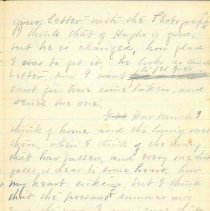 your letter with the Photograph
I think that of Hugh is good,
but he is changed, how glad
I was to get it, he looks so much
better, now I want to see yours
cant you have some taken, and
send me one.
How much I
think of home and the loving ones
there, when I think of the
that have fallen, and every one that
falls is dear to some heart,
my heart sickens but I think
that the present summer will